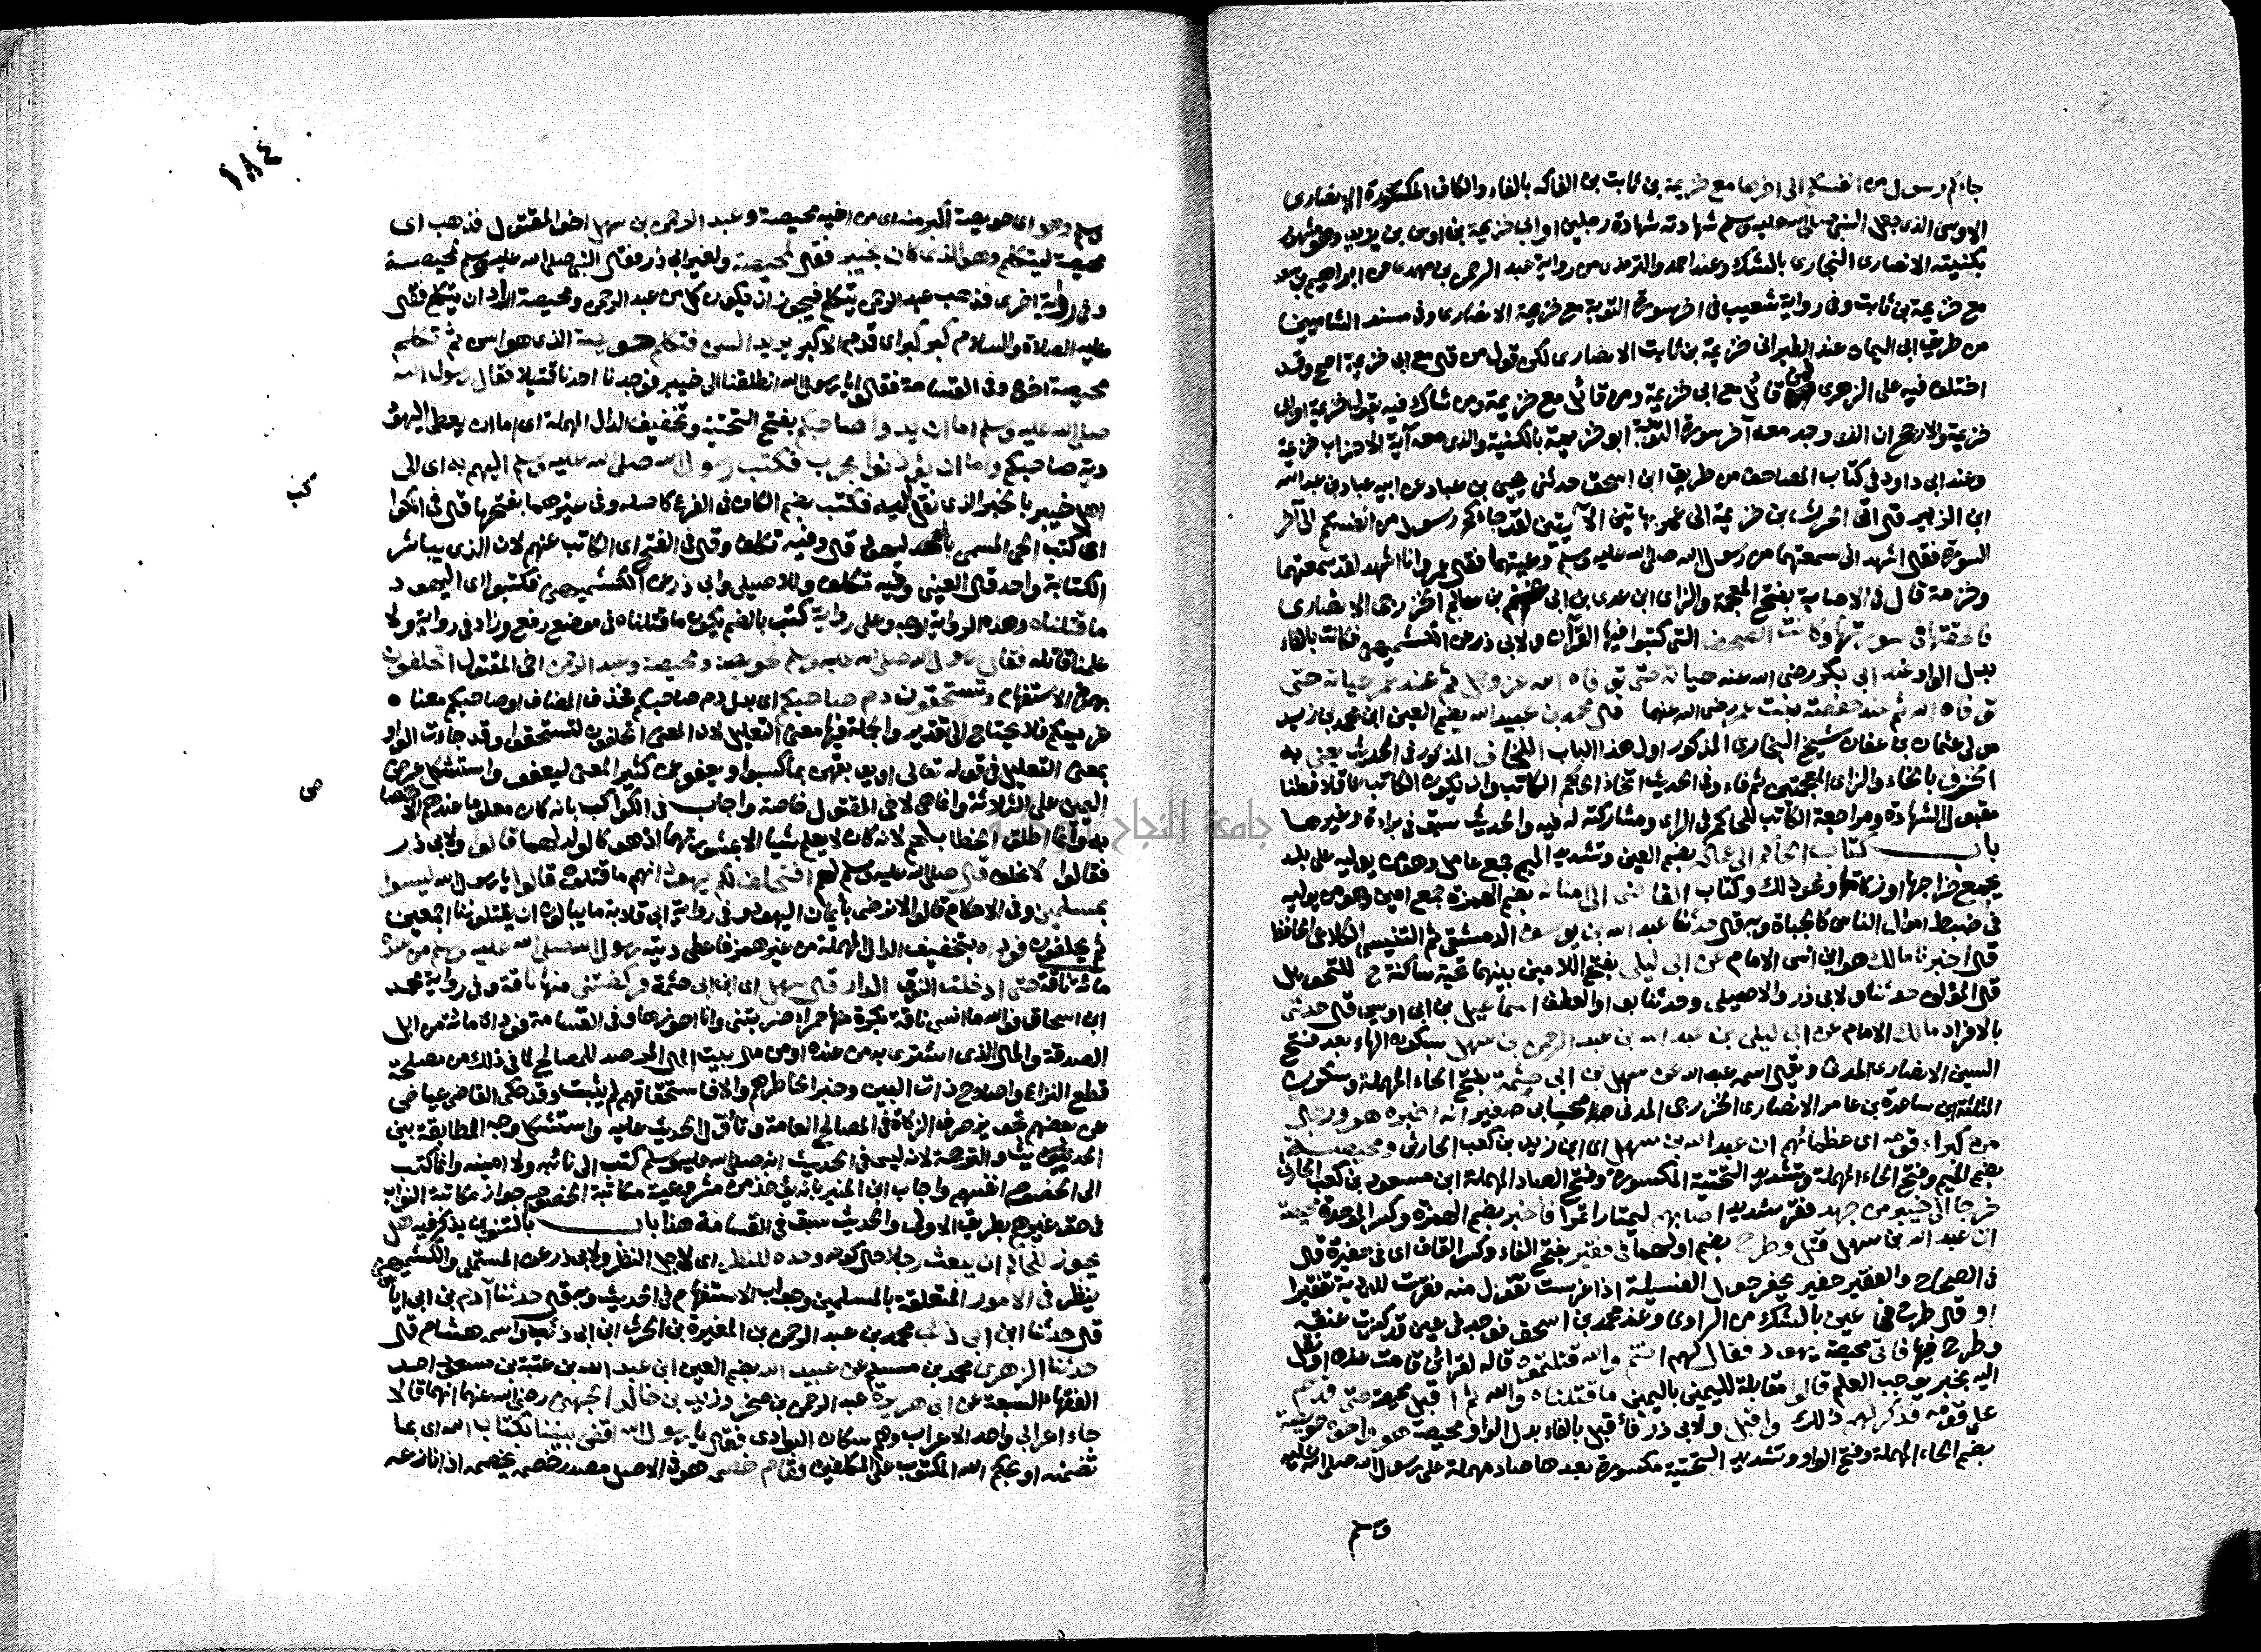 جاءكم رسول من انفسكم الى اخرها مع خزيمة بن ثابت بن الفاكه بالفاء والكاف المكسورة الانصارى
الاوسى الذى جعل النبى صلى الله عليه وسلم شهادته شهادة رجلين او ابى خزيمة بن اوس بن يزيد وهو مشهور
بكنيته الانصارى النجارى بالشك وعند احمد والترمذى من رواية عبد الرحمن بن مهدى عن ابراهيم بن سعد
مع خزيمة بن ثابت وفى رواية شعيب فى اخر سورة التوبة مع خزيمة الانصارى وفى مسند الشاميين
من طريق ابى اليمان عند الطبرانى خزيمة بن ثابت الانصارى لكن قول من قال مع ابى خزيمة اصح وقد
اختلف فيه على الزهرى فمن قائل مع ابى خزيمة ومن قائل مع خزيمة ومن شاك فيه يقول خزيمة او ابى
خزيمة والارجح ان الذى وجد معه آخر سورة التوبة ابو خزيمة بالكنية والذى معه آية الاحزاب خزيمة
وعند ابى داود فى كتاب المصاحف من طريق ابن اسحق حدثنى يحيى بن عباد عن ابيه عباد بن عبد الله
ابن الزبير قال اتى الحرث بن خزيمة الى عمر بهاتين الآيتين لقد جاءكم رسول من انفسكم الى آخر
السورة فقال اشهد انى سمعتهما من رسول الله صلى الله عليه وسلم ووعيتهما فقال عمر وانا اشهد لقد سمعتهما
وخزمة قال فى الاصابة بفتح المعجمة والزاى ابن عدى بن ابى غنم بن سالم الخزرجى الانصارى
فالحقتها فى سورتها وكانت الصحف التى كتبوا فيها القرآن ولابى ذر عن الكشميهنى فكانت بالفاء
بدل الواو عند ابى بكر رضى الله عنه حياته حتى توفاه الله عز وجل ثم عند عمر حياته حتى
توفاه الله ثم عند حفصة بنت عمر رضى الله عنهما قال محمد بن عبيد الله بضم العين ابن محمد بن زيد
مولى عثمان بن عفان شيخ البخارى المذكور اول هذا الباب اللخاف المذكور فى الحديث يعنى به
الخزف بالخاء والزاى المعجمتين ثم فاء وفى الحديث اتخاذ الحاكم الكاتب وان يكون الكاتب عاقلا فطنا
مقبول الشهادة ومراجعة الكاتب للحاكم فى الراى ومشاركته له فيه والحديث سبق فى براءة وغيرها
باب كتاب الحاكم الى عماله بضم العين وتشديد الميم جمع عامل وهو من يوليه على بلد
يجمع خراجها او زكاتها ونحو ذلك وكتاب القاضى الى امنائه بضم الهمزة جمع امين وهو من يوليه
فى ضبط اموال الناس كالجباة وبه قال حدثنا عبد الله بن يوسف الدمشقى ثم التنيسى الكلاعى الحافظ
قال اخبرنا مالك هو ابن انس الامام عن ابى ليلى بفتح اللامين بينهما تحتية ساكنة ح للتحويل
قال المؤلف حدثنا ولابى ذر والاصيلى وحدثنا بواو العطف اسماعيل بن ابى اويس قال حدثنى
بالافراد مالك الامام عن ابى ليلى بن عبد الله بن عبد الرحمن بن سهل بسكون الهاء بعد فتح
السين الانصارى المدنى ويقال اسمه عبد الله عن سهل بن ابى حثمة بفتح الحاء المهملة وسكون
المثلثة ابن ساعدة بن عامر الانصارى الخزرجى المدنى صحابى صغير انه اخبره هو ورجال
من كبراء قومه اى عظمائهم ان عبد الله بن سهل اى ابن زيد بن كعب الحارثى ومحيصة
بضم الميم وفتح الحاء المهملة وتشديد التحتية المكسورة وفتح الصاد المهملة ابن مسعود بن كعب الحارثى
خرجا الى خيبر من جهد فقر شديد اصابهم ليمتارا تمرا فاخبر بضم الهمزة وكسر الموحدة محيصة
ان عبد الله بن سهل قتل وطرح بضم اولهما فى فقير بفتح الفاء وكسر القاف اى فى حفرة قال
فى الصحاح والفقير حفير يحفر حول الفسيلة اذا غرست تقول منه فقرت للودية تفقيرا
او قال طرح فى عين بالشك من الراوى وعند محمد بن اسحق فوجد فى عين قد كسرت عنقه
وطرح فيها فاتى محيصة يهود فقال لهم انتم والله قتلتموه قاله لقرائن قامت عنده او نقل
اليه بخبر يوجب العلم قالوا مقابلة لليمين باليمين ما قتلناه والله ثم اقبل محيصة حتى قدم
على قومه فذكر لهم ذلك واقبل ولابى ذر فاقبل بالفاء بدل الواو محيصة هو واخوه حويصة
بضم الحاء المهملة وفتح الواو وتشديد التحتية مكسورة بعدها صاد مهملة على رسول الله صلى الله عليه
وسلم
١٨٤
وسلم وهو اى حويصة اكبر منه اى من اخيه محيصة وعبد الرحمن بن سهل اخو المقتول فذهب اى
محيصة ليتكلم وهو الذى كان بخيبر فقال لمحيصة ولغير ابى ذر فقال النبى صلى الله عليه وسلم لمحيصة
وفى رواية اخرى فذهب عبد الرحمن يتكلم فيجوز ان يكون كل من عبد الرحمن ومحيصة اراد ان يتكلم فقال
عليه الصلاة والسلام كبر كبر اى قدم الاكبر يريد السن فتكلم حويصة الذى هو اسن ثم تكلم
محيصة اخوه وفى القسامة فقالوا يا رسول الله انطلقنا الى خيبر فوجدنا احدنا قتيلا فقال رسول الله
صلى الله عليه وسلم اما ان يدوا صاحبكم بفتح التحتية وتخفيف الدال المهملة اى اما ان يعطى اليهود
دية صاحبكم واما ان يؤذنوا بحرب فكتب رسول الله صلى الله عليه وسلم اليهم به اى الى
اهل خيبر بالخبر الذى نقل اليه فكتب بضم الكاف فى الفرع كاصله وفى غيرهما بفتحها قال فى الكواكب
كب
اى كتب الحى المسمى باليهود قال وفيه تكلف وقال فى الفتح اى الكاتب عنهم لان الذى يباشر
الكتابة واحد قال العينى وفيه تكلف وللاصيلى وابى ذر عن الكشميهنى فكتبوا اى اليهود
ما قتلناه وهذه الرواية اوجه وعلى رواية كتب بالضم يكون ما قتلناه فى موضع رفع وزاد فى رواية ولا
علمنا قاتله فقال رسول الله صلى الله عليه وسلم لحويصة ومحيصة وعبد الرحمن اخى المقتول اتحلفون
بهمزة الاستفهام وتستحقون دم صاحبكم اى بدل دم صاحبكم فحذف المضاف او صاحبكم معناه
غريمكم فلا يحتاج الى تقدير والجملة فيها معنى التعليل لان المعنى اتحلفون لتستحقوا وقد جاءت الواو
بمعنى التعليل فى قوله تعالى او يوبقهن بما كسبوا ويعفو عن كثير المعنى ليعفو واستشكل عرض
اليمين على الثلاثة وانما هى لاخى المقتول خاصة واجاب فى الكواكب بانه كان معلوما عندهم الاختصا
ص
به وانما اطلق الخطاب لهم لانه كان لا يعمل شيئا الا بمشورتهما اذ هو كالولد لهما قالوا ولابى ذر
فقالوا لا نحلف قال صلى الله عليه وسلم لهم افتحلف لكم يهود انهم ما قتلوه قالوا يا رسول الله ليسوا
بمسلمين وفى الاحكام قالوا لا نرضى بايمان اليهود وفى رواية ابى قلابة ما يبالون ان يقتلوننا اجمعين
ثم يحلفون فوداه بتخفيف الدال المهملة من غير همز فاعطى ديته رسول الله صلى الله عليه وسلم من عنده
مائة ناقة حتى ادخلت النوق الدار قال سهل اى ابن ابى حثمة فركضتنى منها ناقة وفى رواية محمد
ابن اسحاق فوالله ما انسى ناقة بكرة منها حمراء ضربتنى وانا احوزها وفى القسامة فوداه مائة من ابل
الصدقة والمال الذى اشترى به من عنده او من مال بيت المال المرصد للمصالح لما فى ذلك من مصلحة
قطع النزاع واصلاح ذات البين وجبرا لخاطرهم والا فاستحقاقهم لم يثبت وقد حكى القاضى عياض
عن بعضهم تجويز صرف الزكاة فى المصالح العامة وتأول الحديث عليه واستشكل وجه المطابقة بين
الحديث والترجمة لانه ليس فى الحديث انه صلى الله عليه وسلم كتب الى نائبه ولا امينه وانما كتب
الى الخصوم انفسهم واجاب ابن المنير بانه يؤخذ من مشروعية مكاتبة الخصوم جواز مكاتبة النواب
فى حق غيرهم بطريق الاولى والحديث سبق فى القسامة هذا باب بالتنوين يذكر فيه هل
يجوز للحاكم ان يبعث رجلا حال كونه وحده للنظر اى لاجل النظر ولابى ذر عن المستملى والكشميهنى
ينظر فى الامور المتعلقة بالمسلمين وجواب الاستفهام فى الحديث وبه قال حدثنا آدم بن ابى اياس
قال حدثنا ابن ابى ذئب محمد بن عبد الرحمن بن المغيرة بن الحرث ابن ابى ذئب واسمه هشام قال
حدثنا الزهرى محمد بن مسلم عن عبيد الله بضم العين ابن عبد الله بن عتبة بن مسعود احد
الفقهاء السبعة عن ابى هريرة عبد الرحمن بن صخر وزيد بن خالد الجهنى رضى الله عنهما انهما قالا
جاء اعرابى واحد الاعراب وهم سكان البوادى فقال يا رسول الله اقض بيننا بكتاب الله اى بما
تضمنه او بحكم الله المكتوب على المكلفين فقام خصمه هو فى الاصل مصدر خصمه يخصمه اذا نازعه